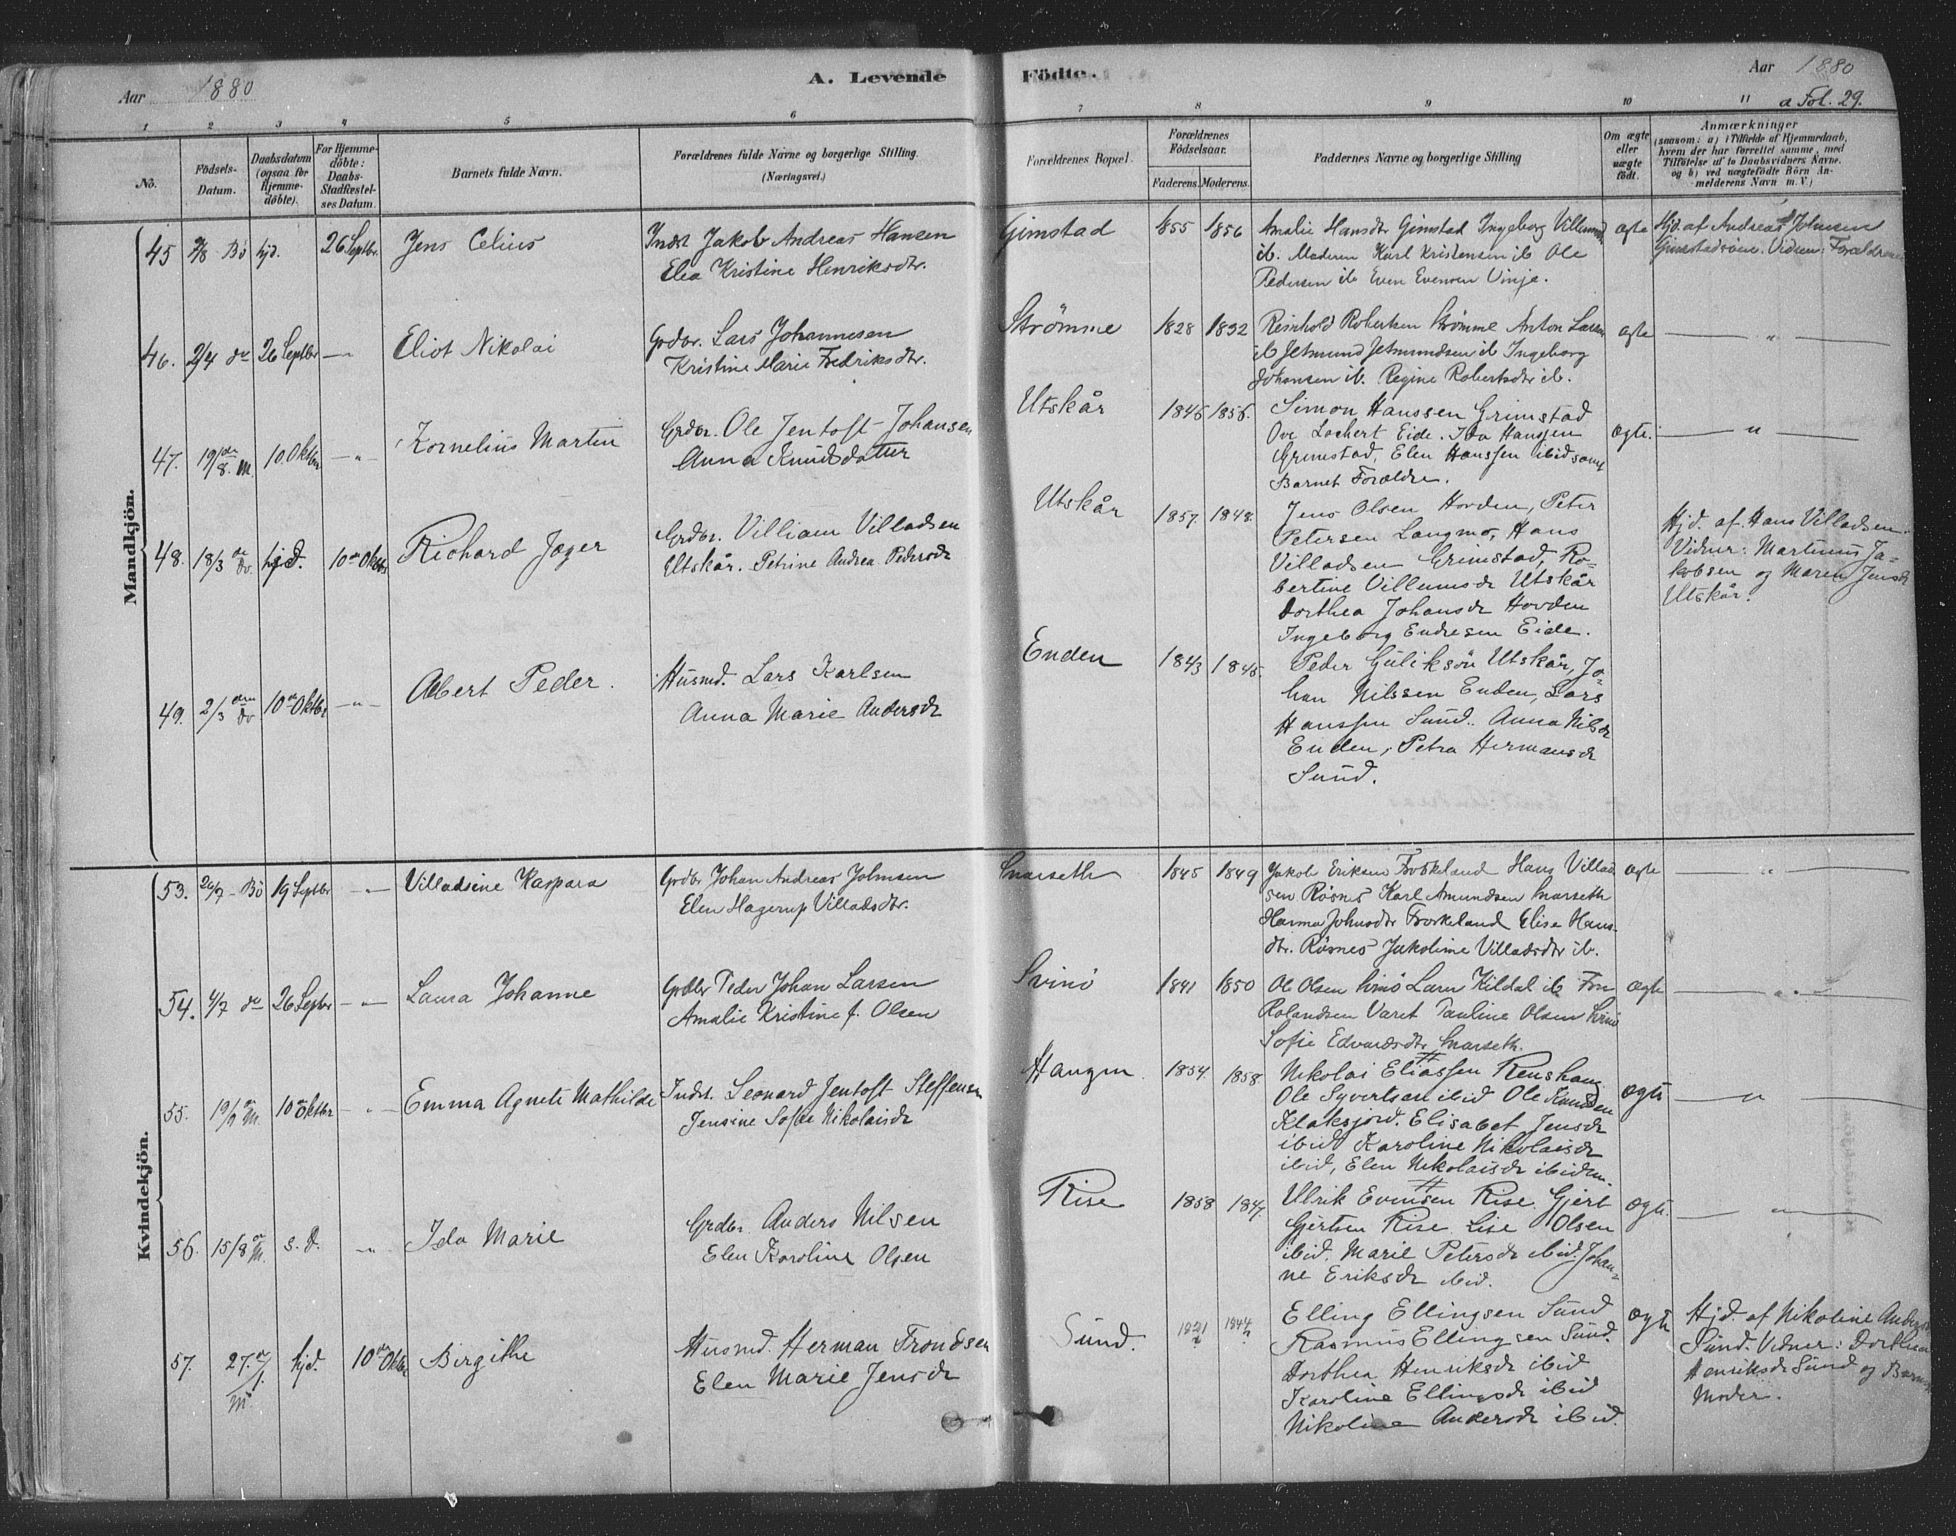 Aar 1880
A. Levende Födte.
Aar 1880
a Fol. 29.
1 2 3 4 5 6 7 8 9 10 11
No.
Födsels-Datum.
Daabsdatum (ogsaa for Hjemmedöbte).
For Hjemmedöbte: Daabs-Stadfæstelses Datum.
Barnets fulde Navn.
Forældrenes fulde Navne og borgerlige Stilling.
(Næringsvei.)
Forældrenes Bopæl.
Forældrenes Födselsaar.
Faderens. Moderens.
Faddernes Navne og borgerlige Stilling
Om ægte eller uægte födt.
Anmærkninger
(saasom: a) i Tilfælde af Hjemmedaab,
hvem der har forrettet samme, med
Tilföielse af to Daabsvidners Navne.
og b) ved uægtefödte Börn Anmelderens Navn m. V.)
Mandkjön.
45 2/8 Bö hjd. 26 Septbr. Jens Celius
Indst Jakob Andreas Hansen
Elea Kristine Henriksdtr.
Gimstad 1855 1856
Amalie Hansdtr Gimstad Ingeborg
ib. Moderen Karl Kristensen ib Ole
Pedersen ib Even Evensen Vinje.
ægte
Hjd. af Andreas Johnsen
Gimstad Vidner: Forældrene
46. 2/4 do 26 Septbr — " — Eliot Nikolai
Grdbr. Lars Johannesen
Kristine Marie Fredriksdtr.
Strömme 1828 1832
Reinhold Robertsen Strömme Anton Larsen
ib Jetmund Jetmundsen ib Ingeborg
Johansen ib. Regine Robertsdtr ib.
ægte — " —
47. 19/8 10. Oktbr - " - Kornelius Martin
Grdbr. Ole Jentoft Johansen
Anna Knudsdatter
Utskår 1846 1856.
Simon Hanssen Grimstad
Ove Lockert Eide. Ida Hanssen
Grimstad, Elen Hanssen ibid samt
Barnets Forældre.
ægte. — " —
48. 18/3 hjd. 10de Oktbr Richard Jæger
Grdbr. Villiam Villadsen
Utskår. Petrine Andrea Pedersdr
Utskår 1857. 1848.
Jens Olsen Hovden, Peter
Petersen Langmo, Hans
Villadsen Grimstad, Ro-
bertine Villumsdr Utskår
Dorthea Johansdr Hovden
Ingeborg Endresen Eide.
Hjd. af Hans Villadsen.
Vidner: Martinus Ja-
kobsen og Maren Jensdr
Utskår.
49. 2/3 10de Oktbr - " - Albert Peder.
Husmd. Lars Karlsen
Anna Marie Andersdr
Enden 1843 1845.
Peder Guliksön Utskår, Jo-
han Nilssen Enden, Lars
Hanssen Sund. Anna Nilsdr
Enden, Petra Hermansdr
Sund.
Kvindekjön.
53. 26/7 - Bö 19 Septbr - " - Villadsine Kaspara
Grdbr Johan Andreas Johnsen
Elen Hagerup Villadsdtr.
Snarseth 1845 1849
Jakob Eriksen Froskeland Hans Villad
sen Rösnes Karl Amundsen Snarseth
Hanna Johnsdtr Froskeland Elise Hans-
dtr. Rösnes Jakoline Villadsdtr ib.
ægte — " —
54. 4/7 do 26 Septbr - " - Laura Johanne
Grdbr Peder Johan Larsen
Amalie Kristine f. Olsen
Svinö 1841 1850
Ol Olsen Svinö Kildal ib
Rolandsen Varet Pauline Olsen Svinö
Sofie Edvardsdtr Snarseth.
ægte — " —
55. 19/9 10de Oktbr - " - Emma Agnete Mathilde
Indst. Leonard Jentoft Steffensen
Jensine Sofie Nikolaisdr
Haugen 1854. 1858.
Nikolai Eliassen Renshaug
Ole Syvertsen ibid Ole Knudsen
Klaksjord. Elisabet Jensdr
ibid Karoline Nikolaisdr
ibid, Elen Nikolaisdr ibidem.
ægte — " —
56. 15/8 s. d. " Ida Marie
Grdbr. Anders Nilsen
Elen Karoline Olsen
Rise 1858 1847.
Ulrik Evensen Rise Gjert
Gjertsen Rise Lise Olsen
ibid. Marie Petersdr ibid. Johan-
ne Eriksdr ibid.
ægte. — " —
57. 27/1 hjd. 10de Oktbr Birgithe
Husmd. Herman Trondsen
Elen Marie Jensdr
Sund. 1821 1844
Elling Ellingsen Sund
Rasmus Ellingsen Sund.
Dorthea Henriksdr ibid
Karoline Ellingsdr ibid
Nikoline Andersdr ibid.
ægte
Hjd. af Nikoline Andersdr
Sund. Vidner: Dorthea
Henriksdr Sund og Barnets
Moder.